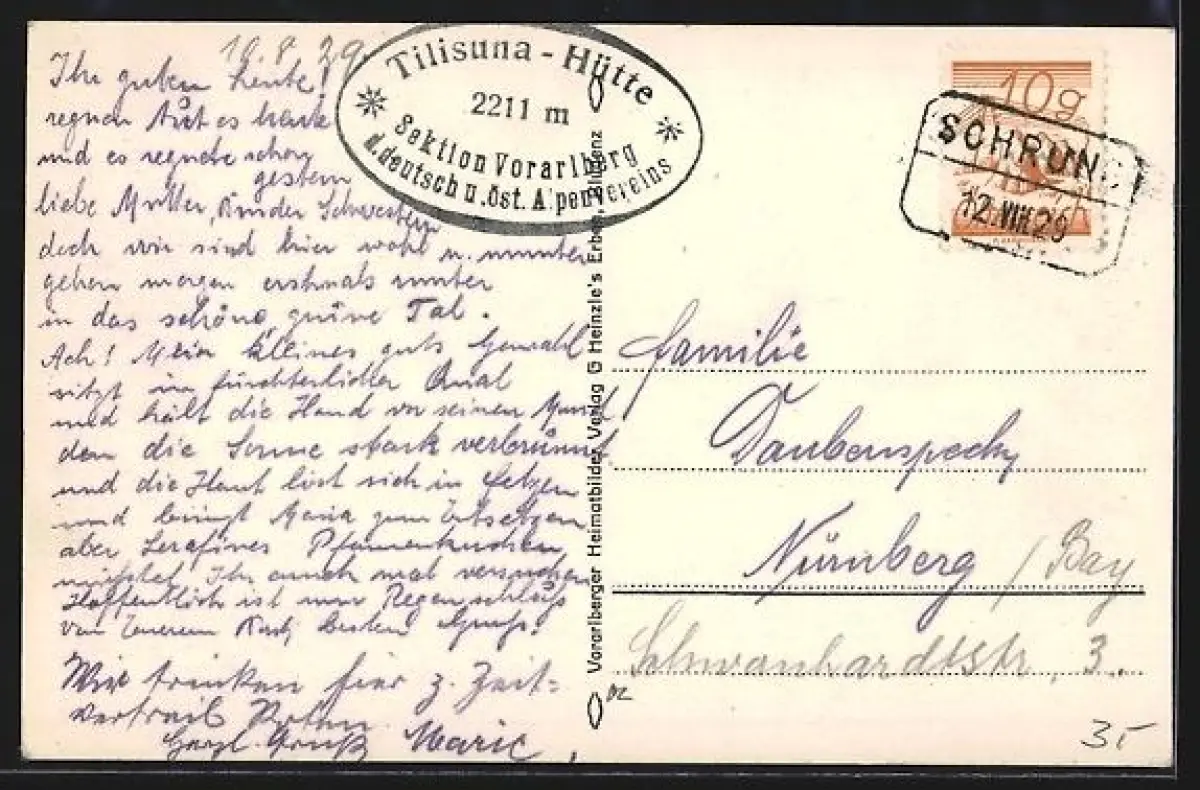 10.8.29
Ihr guten Leute!
regnen tut es heute
und es regnete schon
gestern
liebe Mutter, Kinder Schwestern
doch wir sind hier wohl u. munter
gehen morgen erstmals runter
in das schöne, grüne Tal.
Ach! Mein kleines guts Gemahl
sitzt in fürchterlicher Qual
und hält die Hand vor seinen Mund
den die Sonne stark verbrünnt
und die Haut löst sich in Fetzen
und bringt Maria zum Entsetzen
aber Serafines Pfannenkuchen
müsstet Ihr auch mal versuchen
Hoffentlich ist nun Regenschluss
von Eurem Karl besten Gruss!
Wir trinken hier z. Zeit-
vertreib Roten.
Herzl. Gruß Marie
Tilisuna-Hütte
2211 m
Sektion Vorarlberg
d. deutsch u. öst. Alpenvereins
Vorarlberger Heimatbilder Verlag G Heinzle's Erben, Bludenz
10g
SCHRUNS
12.VIII.29
Familie
Daubenspeck
Nürnberg / Bay
Schwanhardtstr. 3.
35